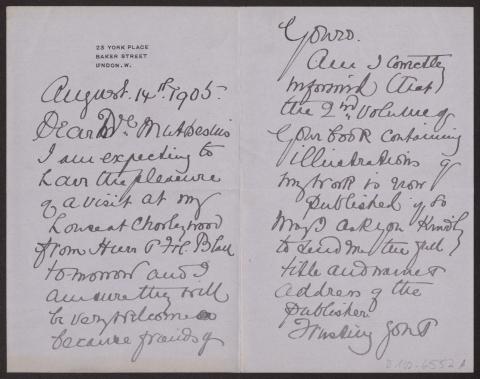 23 YORK PLACE
BAKER STREET
LONDON. W.
August. 14th 1905.
Dear Dr
I am expecting to
have the pleasure
of a visit at my
house at Chorleywood
from Herr & Frl Blau
tomorrow and I
am sure they will
be very welcome
because friends of
Yours.
Am I correctly
informed that
the 2nd volume of
your book containing
illustrations of
my work is now
published if so
may I ask you kindly
to send me the full
title and name &
address of the
publisher
Trusting you
D 100-6552 A